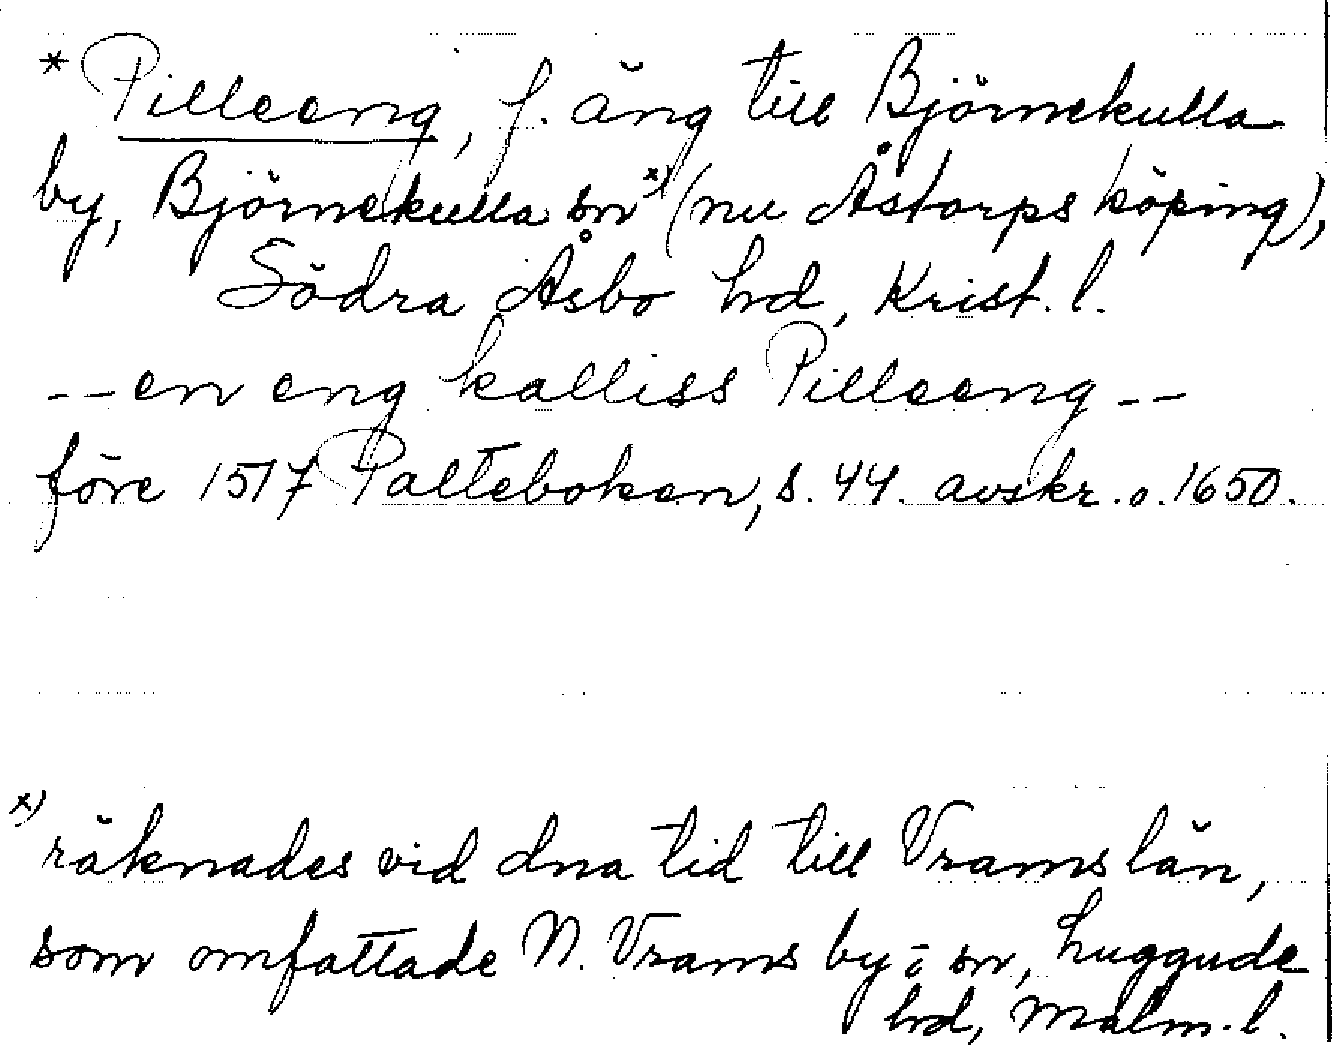 * Pilleeng, f. äng till Björnekulla
by, Björnekulla sn x) (nu Åstorps köping),
Södra Åsbo hd, Krist. l.
-- en eng kalliss Pilleeng --
före 1517 Palteboken, s. 44. avskr. o. 1650.
x) räknades vid dna tid till Vrams län,
som omfattade N. Vrams by i sn, Luggude
hd, Malm. l.